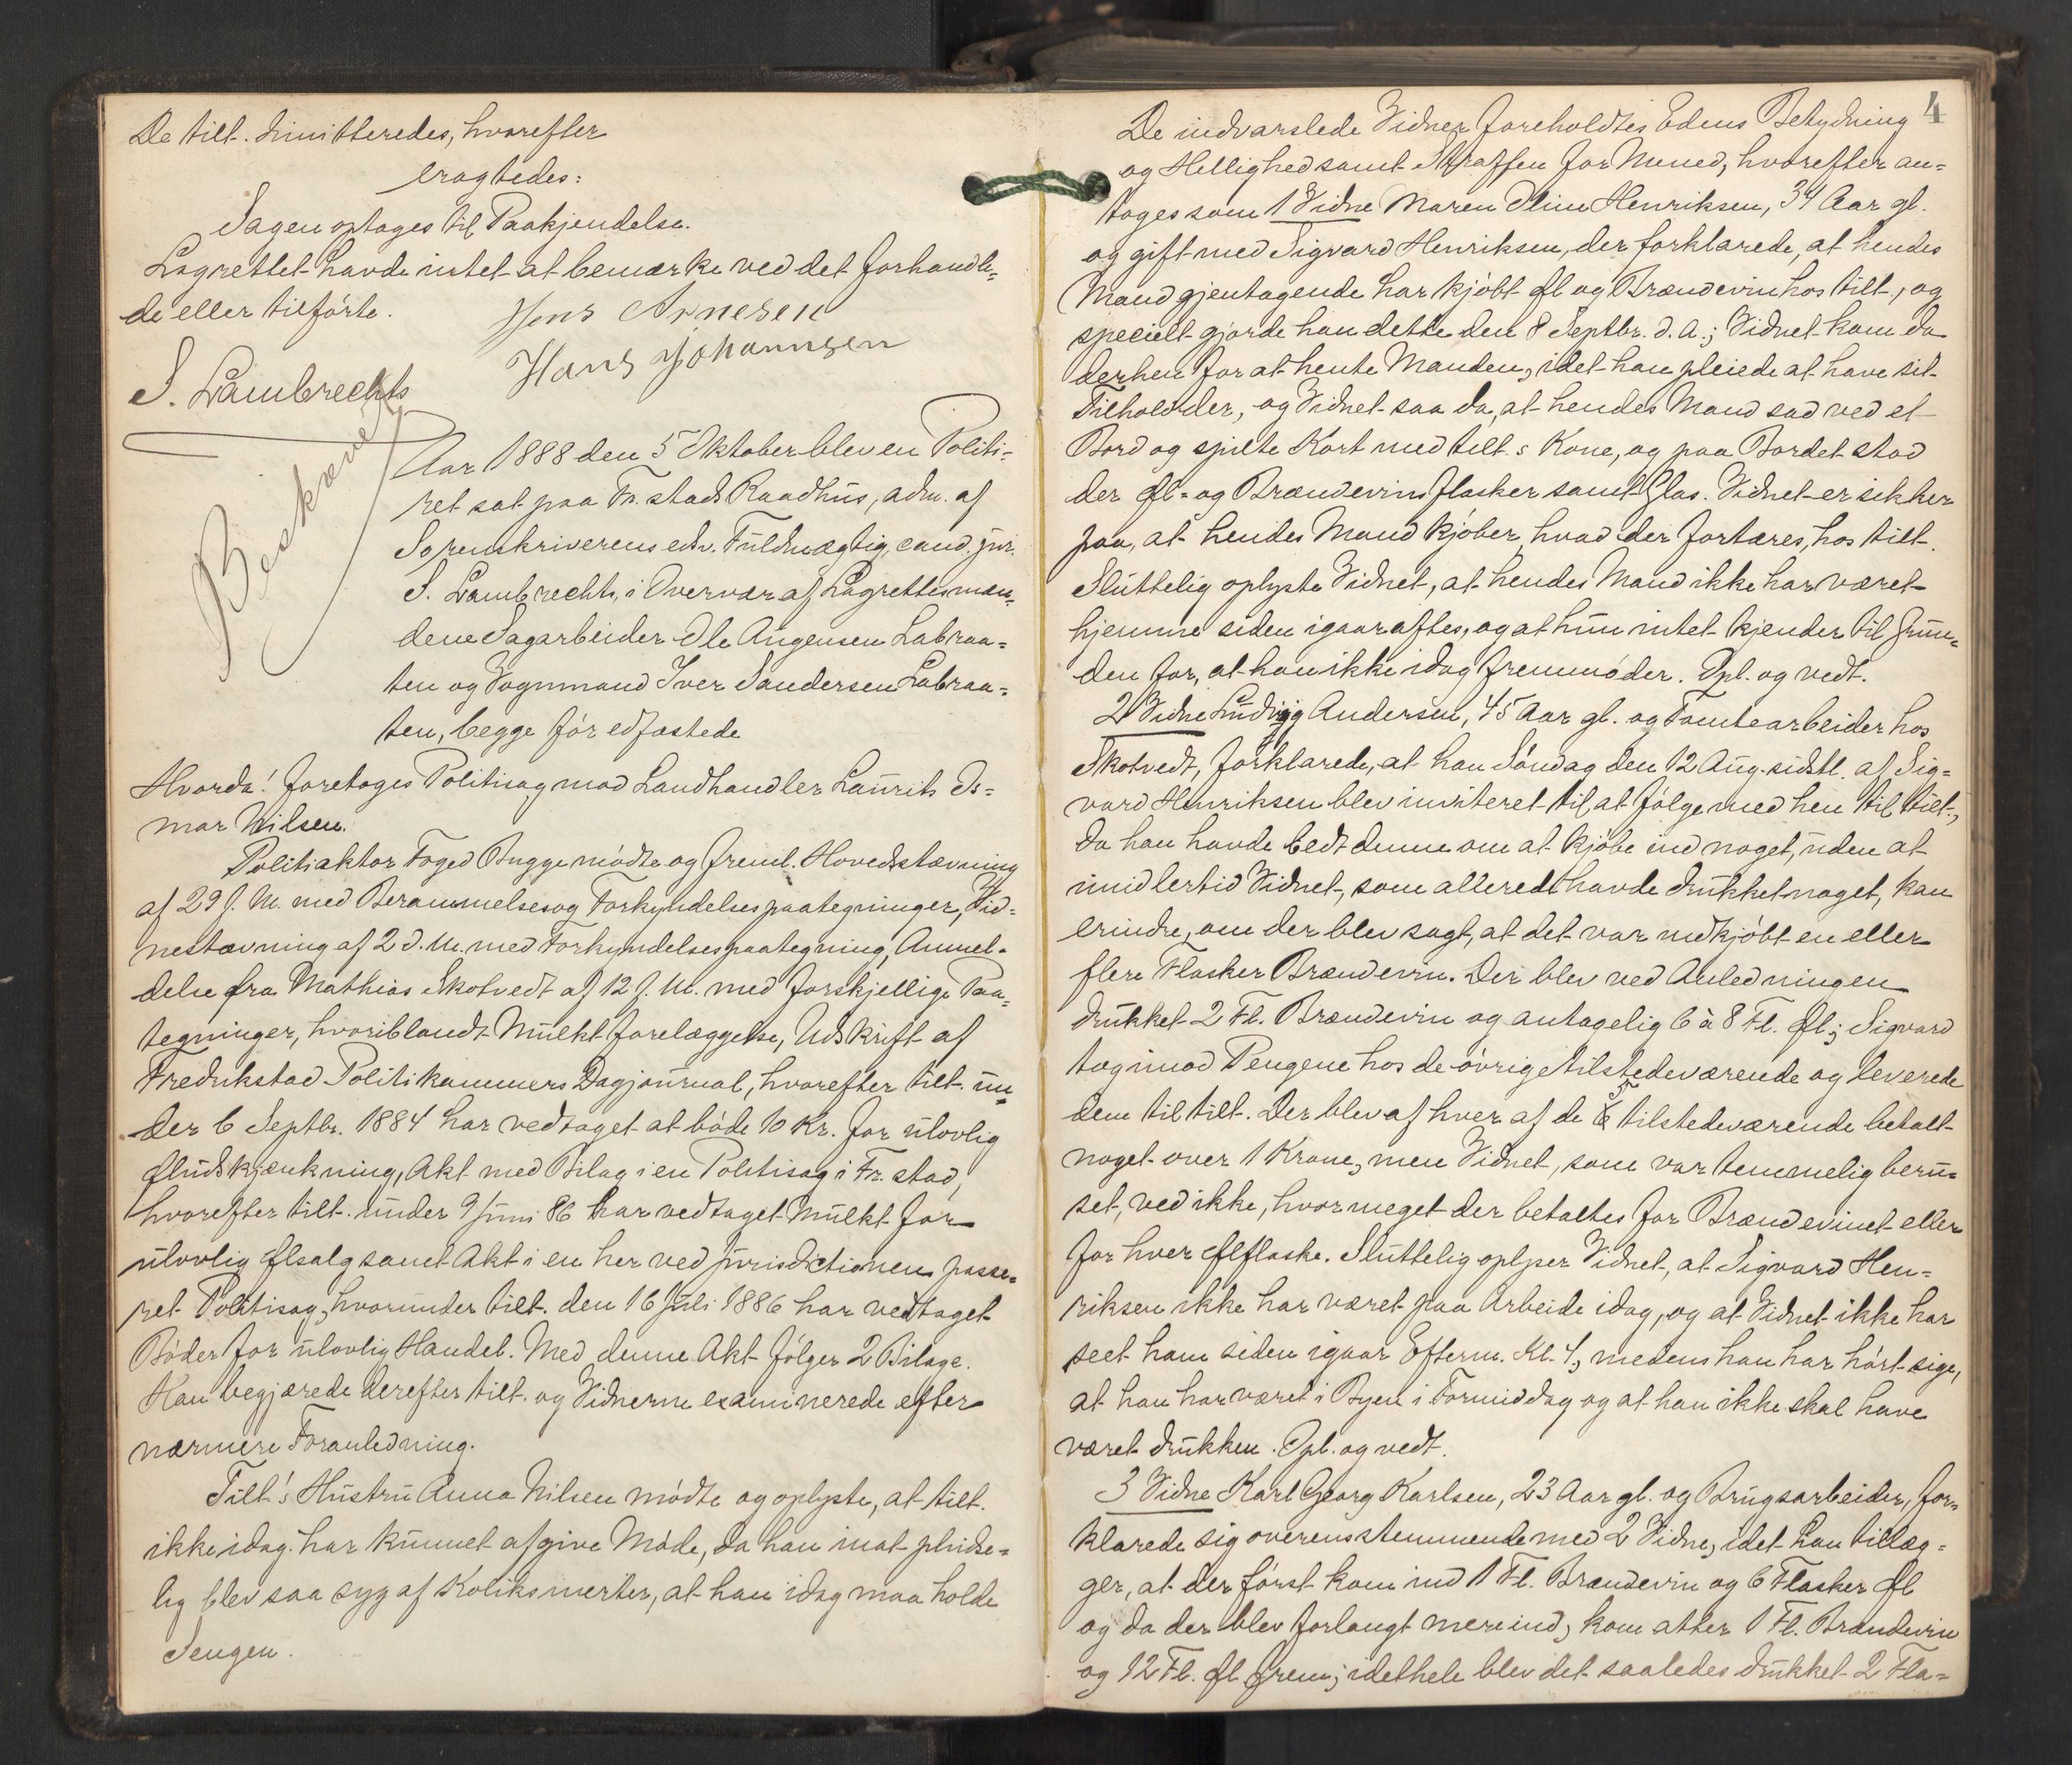 De tilt. dimitteredes, hvorefter
eragtedes:
Sagen optages til Paakjendelse.
Lagrettet havde intet at bemærke ved det forhandle=
de eller tilførte.
Jens Arnesen
Hans Johannsen
S. Lambrechts
Beskrevet
Aar 1888 den 5 Oktober blev en Politi=
ret sat paa Fr.stads Raadhus, adm. af
Sorenskriverens edsv. Fuldmægtig, cand. jur.
S. Lambrechts, i Overvær af Lagrettesmæn=
dene Sagarbeider Ole Augensen Labraa=
ten og Vognmand Iver Sandersen Labraa=
ten, begge før edfæstede
Hvorda! foretoges Politisag mod Landhandler Laurits Os=
mar Nilsen.
Politiaktor Foged Bugge mødte og freml. Hovedstævning
af 29 f. M. med Berammelses og Forkyndelsespaategninger, Vid=
nestævning af 2 d. M. med Forkyndelsespaategning, Anmel=
delse fra Mathias Skotvedt af 12 f. M. med forskjellige Paa=
tegninger, hvoriblandt Mulktforelæggelse, Udskrift af
Fredrikstad Politikammers Dagjournal, hvorefter tilt. un=
der 6 Septbr. 1884 har vedtaget at bøde 10 Kr. for ulovlig
Øludskjænkning, Akt med Bilag i en Politisag i Fr.stad,
hvorefter tilt. under 9 Juni 86 har vedtaget Mulkt for
ulovlig Ølsalg samt Akt i en her ved Jurisdictionen passe=
ret Politisag, hvorunder tilt. den 16 Juli 1886 har vedtaget
Bøder for ulovlig Handel. Med denne Akt følger 2 Bilage.
Han begjærede derefter tilt. og Vidnerne examinerede efter
nærmere Foranledning.
Tilt.'s Hustru Anna Nilsen mødte og oplyste, at tilt.
ikke idag har kunnet afgive Møde, da han inat pludse=
lig blev saa syg af Koliksmerter, at han idag maa holde
Sengen.
4
De indvarslede Vidner foreholdtes Edens Betydning
og Hellighed samt Straffen for Mened, hvorefter an=
toges som 1 Vidne Maren Oline Henriksen, 34 Aar gl.
og gift med Sigvard Henriksen, der forklarede, at hendes
Mand gjentagende har kjøbt Øl og Brændevin hos tilt., og
specielt gjorde han dette den 8 Septbr. d. A.; Vidnet kom da
derhen for at hente Manden, idet han pleiede at have sit
Tilhold der, og Vidnet saa da, at hendes Mand sad ved et
Bord og spilte Kort med tilt.s Kone, og paa Bordet stod
der Øl= og Brændevinsflasker samt Glas. Vidnet er sikker
paa, at hendes Mand kjøber, hvad der fortæres, hos tilt.
Sluttelig oplyste Vidnet, at hendes Mand ikke har været
hjemme siden igaaraftes, og at hun intet kjender til Grun=
den for, at han ikke idag fremmøder. Opl. og vedt.
2 Vidne Ludvig Andersen, 45 Aar gl. og Tomtearbeider hos
Skotvedt, forklarede, at han Søndag den 12 Aug. sidstl. af Sig=
vard Henriksen blev inviteret til at følge med hen til tilt.,
da han havde bedt denne om at kjøbe ind noget, uden at
imidlertid Vidnet, som allerede havde drukket noget, kan
erindre, om der blev sagt, at det var indkjøbt en eller
flere Flasker Brændevin. Der blev ved Anledningen
drukket 2 Fl. Brændevin og antagelig 6 à 8 Fl. Øl; Sigvard
tog imod Pengene hos de øvrige tilstedeværende og leverede
dem til tilt. Der blev af hver af de 5 tilstedeværende betalt
noget over 1 Krone, men Vidnet, som var temmelig beru=
set, ved ikke, hvor meget der betaltes for Brændevinet eller
for hver Ølflaske. Sluttelig oplyser Vidnet, at Sigvard Hen=
riksen ikke har været paa Arbeide idag, og at Vidnet ikke har
seet ham siden igaar Efterm. Kl. 4, medens han har hørt sige,
at han har været i Byen i Formiddag og at han ikke skal have
været drukken. Opl. og vedt.
3 Vidne Karl Georg Karlsen, 23 Aar gl. og Brugsarbeider, for=
klarede sig overensstemmende med 2 Vidne, idet han tillæg=
ger, at der først kom ind 1 Fl. Brændevin og 6 Flasker Øl
og da der blev forlangt mere ind, kom atter 1 Fl. Brændevin
og 12 Fl. Øl frem; idethele blev det saaledes drukket 2 Fla=